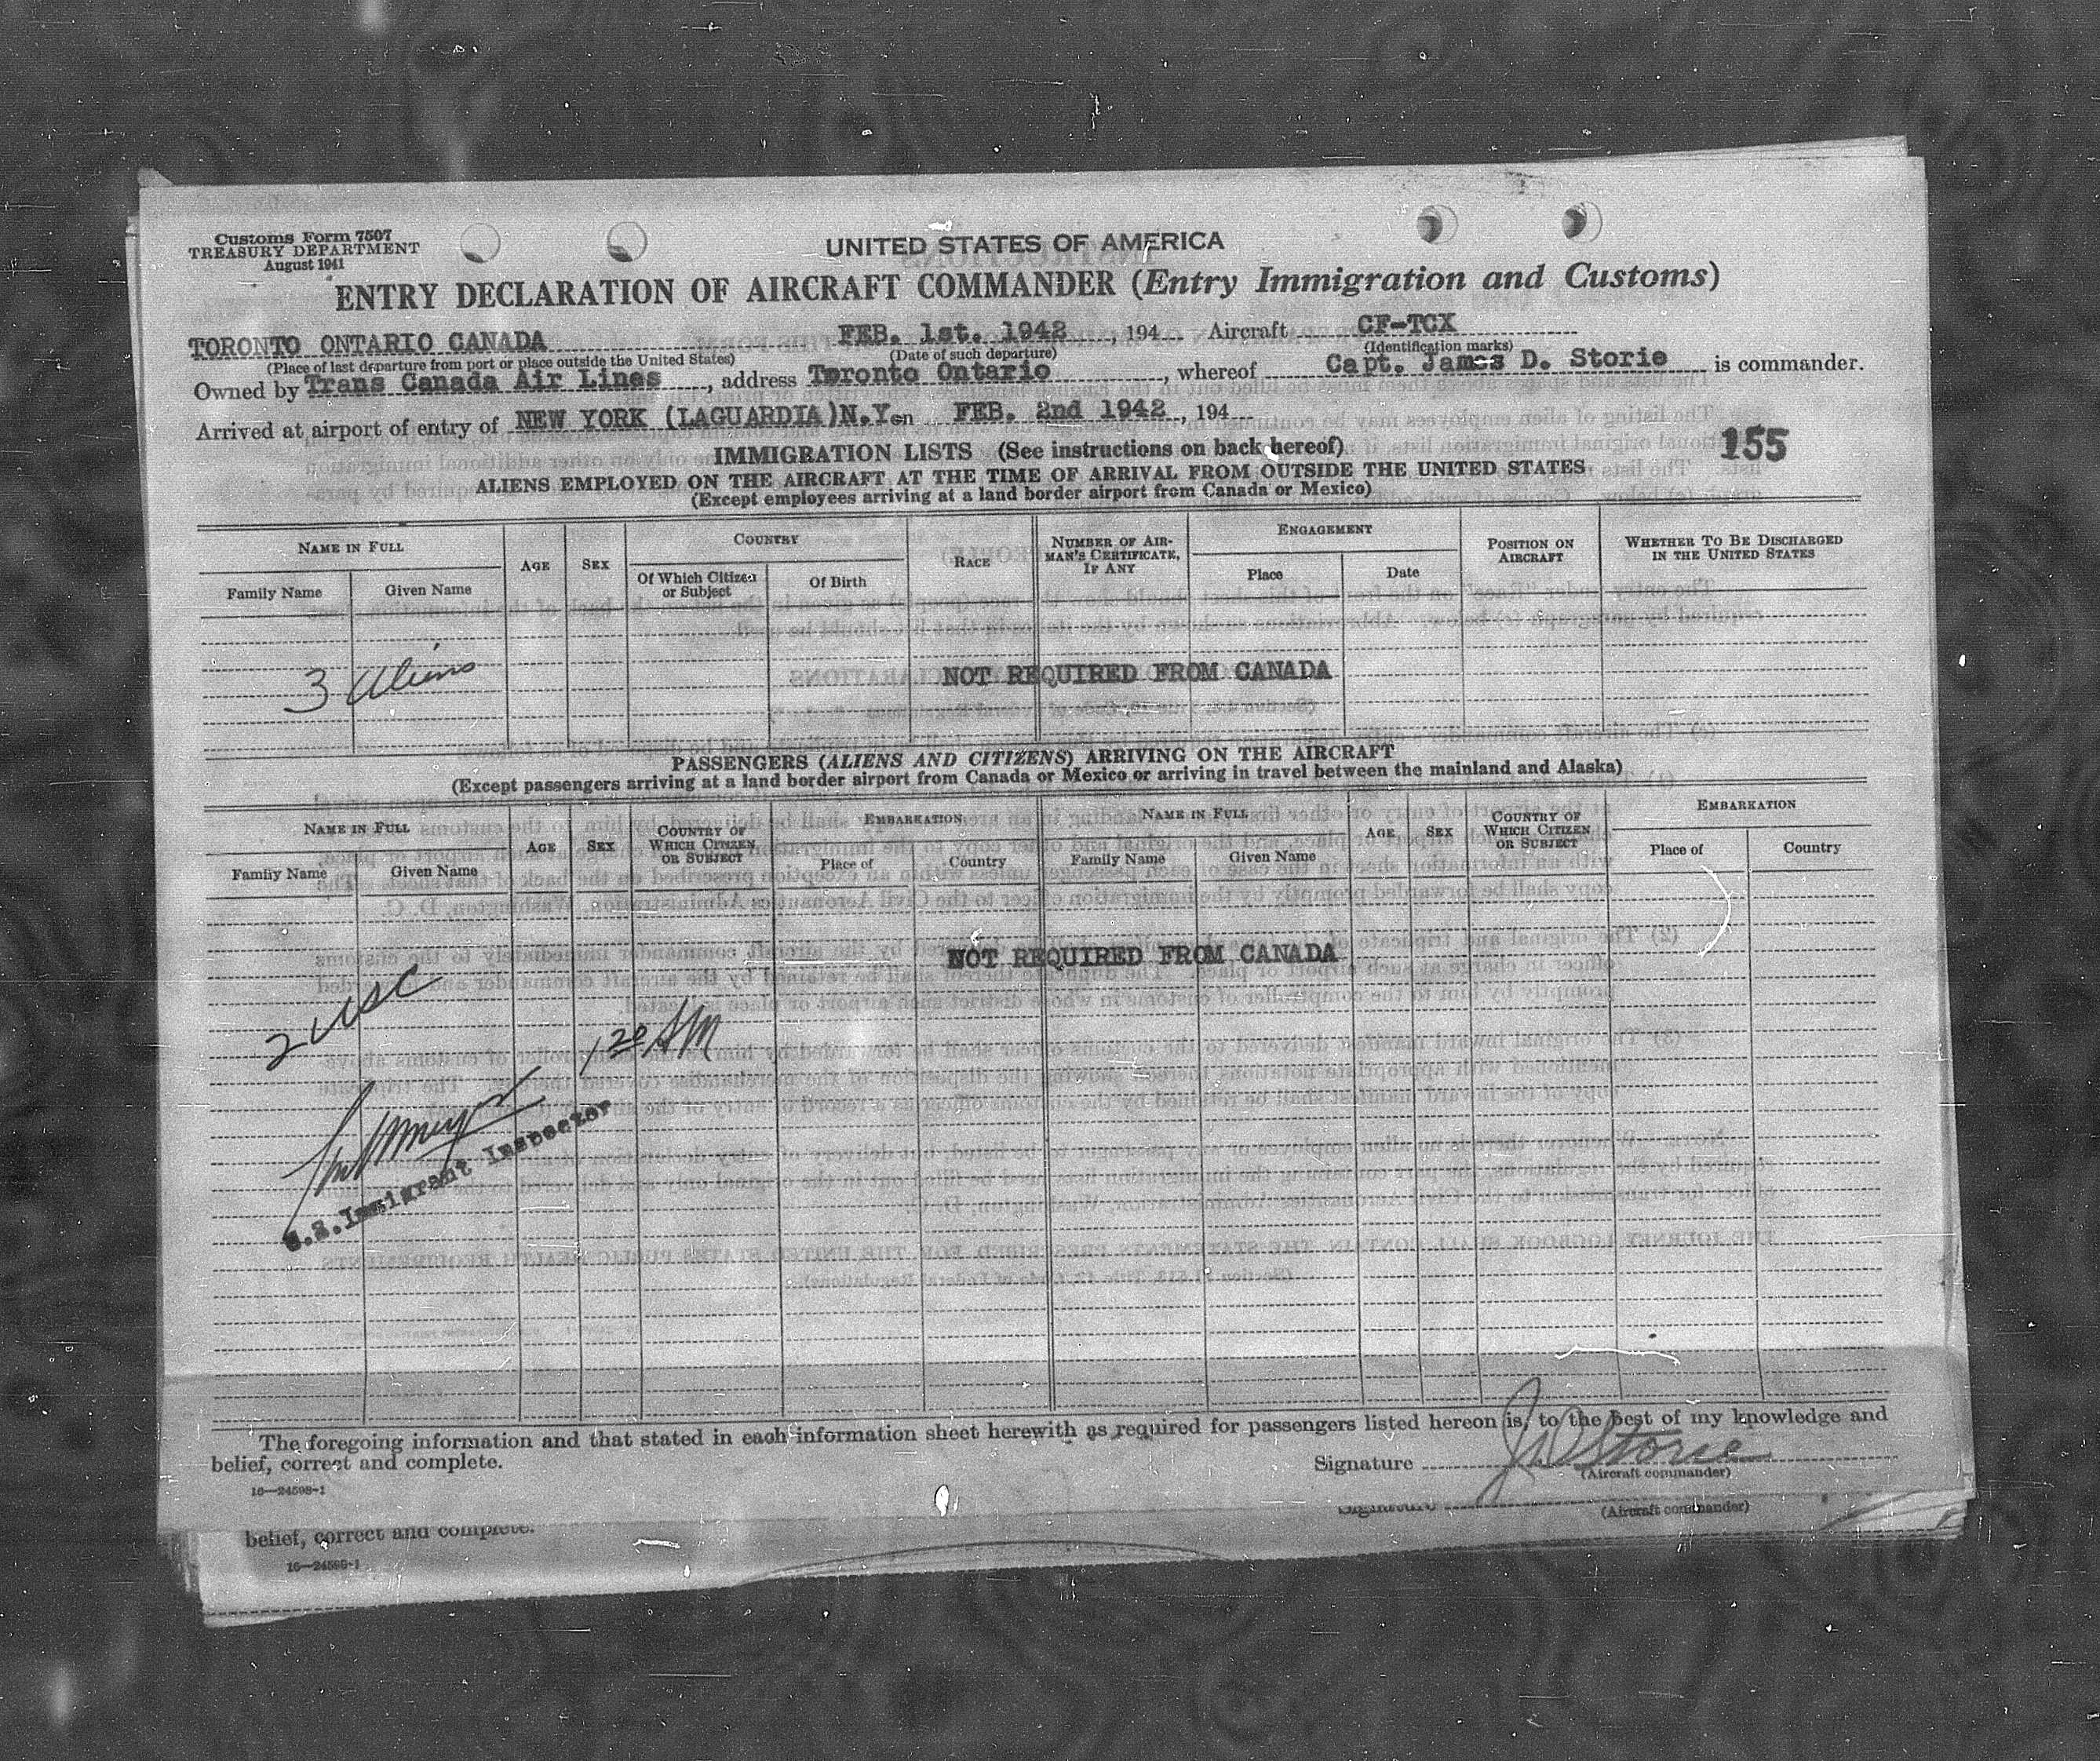 Customs Form 7507
TREASURY DEPARTMENT
August 1941
UNITED STATES OF AMERICA
ENTRY DECLARATION OF AIRCRAFT COMMANDER (Entry Immigration and Customs)
TORONTO ONTARIO CANADA FEB. 1st. 1942, 194 Aircraft CF-TCX
(Place of last departure from port or place outside the United States) (Date of such departure) (Identification marks)
Owned by Trans Canada Air Lines, address Toronto Ontario, whereof Capt. James D. Storie is commander.
Arrived at airport of entry of NEW YORK (LAGUARDIA)N.Y. on FEB. 2nd 1942, 194
155
IMMIGRATION LISTS (See instructions on back hereof)
ALIENS EMPLOYED ON THE AIRCRAFT AT THE TIME OF ARRIVAL FROM OUTSIDE THE UNITED STATES
(Except employees arriving at a land border airport from Canada or Mexico)
NAME IN FULL AGE SEX COUNTRY RACE NUMBER OF AIRMAN'S CERTIFICATE, IF ANY ENGAGEMENT POSITION ON AIRCRAFT WHETHER TO BE DISCHARGED IN THE UNITED STATES
Family Name Given Name Of Which Citizen or Subject Of Birth Place Date
3 Aliens NOT REQUIRED FROM CANADA
PASSENGERS (ALIENS AND CITIZENS) ARRIVING ON THE AIRCRAFT
(Except passengers arriving at a land border airport from Canada or Mexico or arriving in travel between the mainland and Alaska)
NAME IN FULL AGE SEX COUNTRY OF WHICH CITIZEN OR SUBJECT EMBARKATION NAME IN FULL AGE SEX COUNTRY OF WHICH CITIZEN OR SUBJECT EMBARKATION
Family Name Given Name Place of Country Family Name Given Name Place of Country
NOT REQUIRED FROM CANADA
2 USC
1 20 AM
U.S.Immigrant Inspector
The foregoing information and that stated in each information sheet herewith as required for passengers listed hereon is, to the best of my knowledge and
belief, correct and complete.
Signature J D Storie
(Aircraft commander)
16—24598-1
Signature
(Aircraft commander)
belief, correct and complete.
16—24598-1